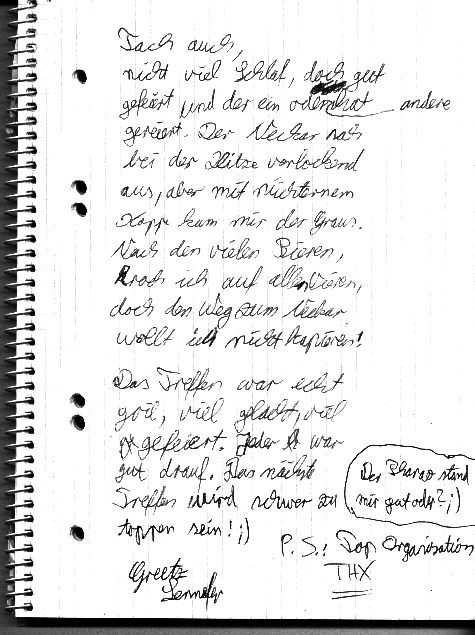 Tach auch,
nicht viel Schlaf, doch gut
gefeiert und der ein oder hat andere
gereiert. Der Neckar nach
bei der Hitze verlockend
aus, aber mit nüchternem
Kopp kam mir der Graus.
Nach den vielen Bieren,
kroch ich auf allen Vieren,
doch den Weg zum Neckar
wollt ich nicht kapieren!
Das Treffen war echt
goil, viel glacht, viel
gefeiert. Jeder war
gut drauf. Das nächste
Treffen wird schwer zu
toppen sein! ;)
Der Pharao stand
mir gut oder? ;)
P.S.: Top Organisation
THX
Greetz